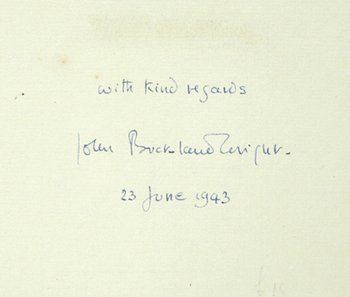 with kind regards
John Buckland Wright.
23 June 1943